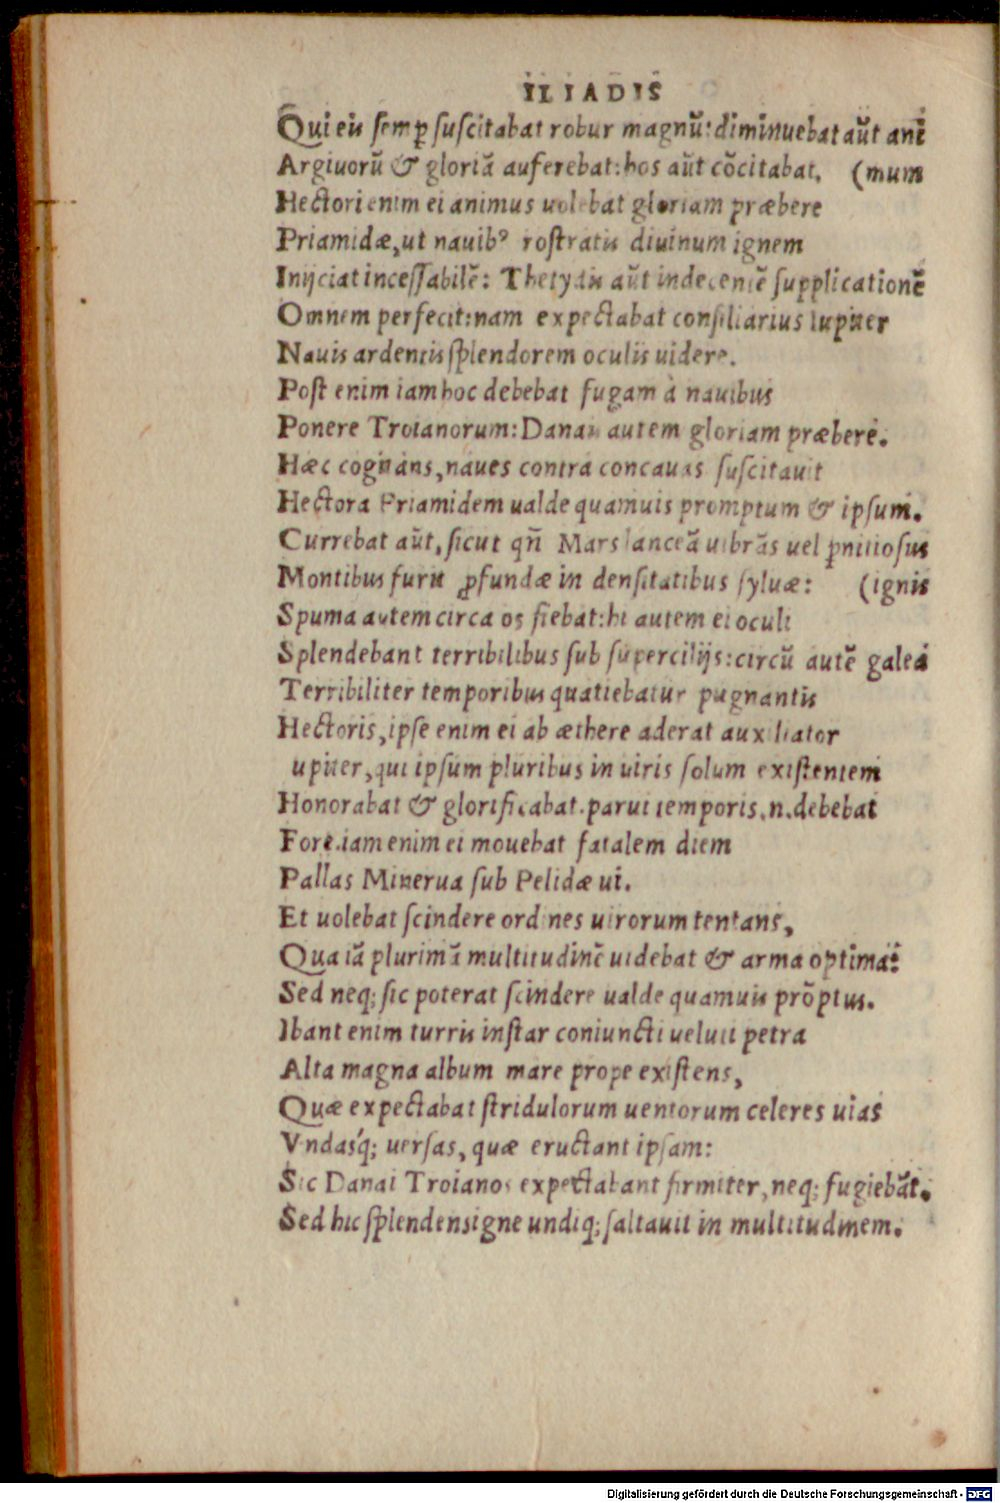 ILIADIS
Qui eis semꝑ suscitabat robur magnũ: diminuebat aũt ani
Argiuorũ & gloriã auferebat: hos aũt cõcitabat. (mum
Hectori enim ei animus uolebat gloriam præbere
Priamidæ, ut nauibꝰ rostratis diuinum ignem
Inijciat incessabilẽ: Thetydis aũt indecentẽ supplicationẽ
Omnem perfecit: nam expectabat consiliarius Iupiter
Nauis ardentis splendorem oculis uidere.
Post enim iam hoc debebat fugam à nauibus
Ponere Troianorum: Danais autem gloriam præbere.
Hæc cogitans, naues contra concauas suscitauit
Hectora Priamidem ualde quamuis promptum & ipsum.
Currebat aũt, sicut qñ Mars lanceã uibrãs uel ꝑnitiosus
Montibus furit ꝓfundæ in densitatibus syluæ: (ignis
Spuma autem circa os fiebat: hi autem ei oculi
Splendebant terribilibus sub supercilijs: circũ autẽ galea
Terribiliter temporibus quatiebatur pugnantis
Hectoris, ipse enim ei ab æthere aderat auxiliator
upiter, qui ipsum pluribus in uiris solum existentem
Honorabat & glorificabat. parui temporis .n. debebat
Fore. iam enim ei mouebat fatalem diem
Pallas Minerua sub Pelidæ ui.
Et uolebat scindere ordines uirorum tentans,
Qua iã plurimã multitudinẽ uidebat & arma optima:
Sed neq; sic poterat scindere ualde quamuis prõptus.
Ibant enim turris instar coniuncti ueluti petra
Alta magna album mare prope existens,
Quæ expectabat stridulorum uentorum celeres uias
Vndasq́; uersas, quæ eructant ipsam:
Sic Danai Troianos expectabant firmiter, neq; fugiebãt.
Sed hic splendens igne undiq; saltauit in multitudinem.
Digitalisierung gefördert durch die Deutsche Forschungsgemeinschaft - DFG